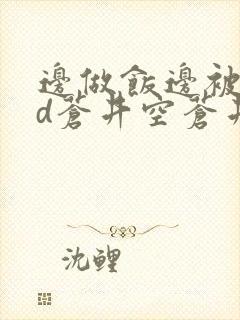 邊做飯邊被
d蒼井空蒼井
沈鯉